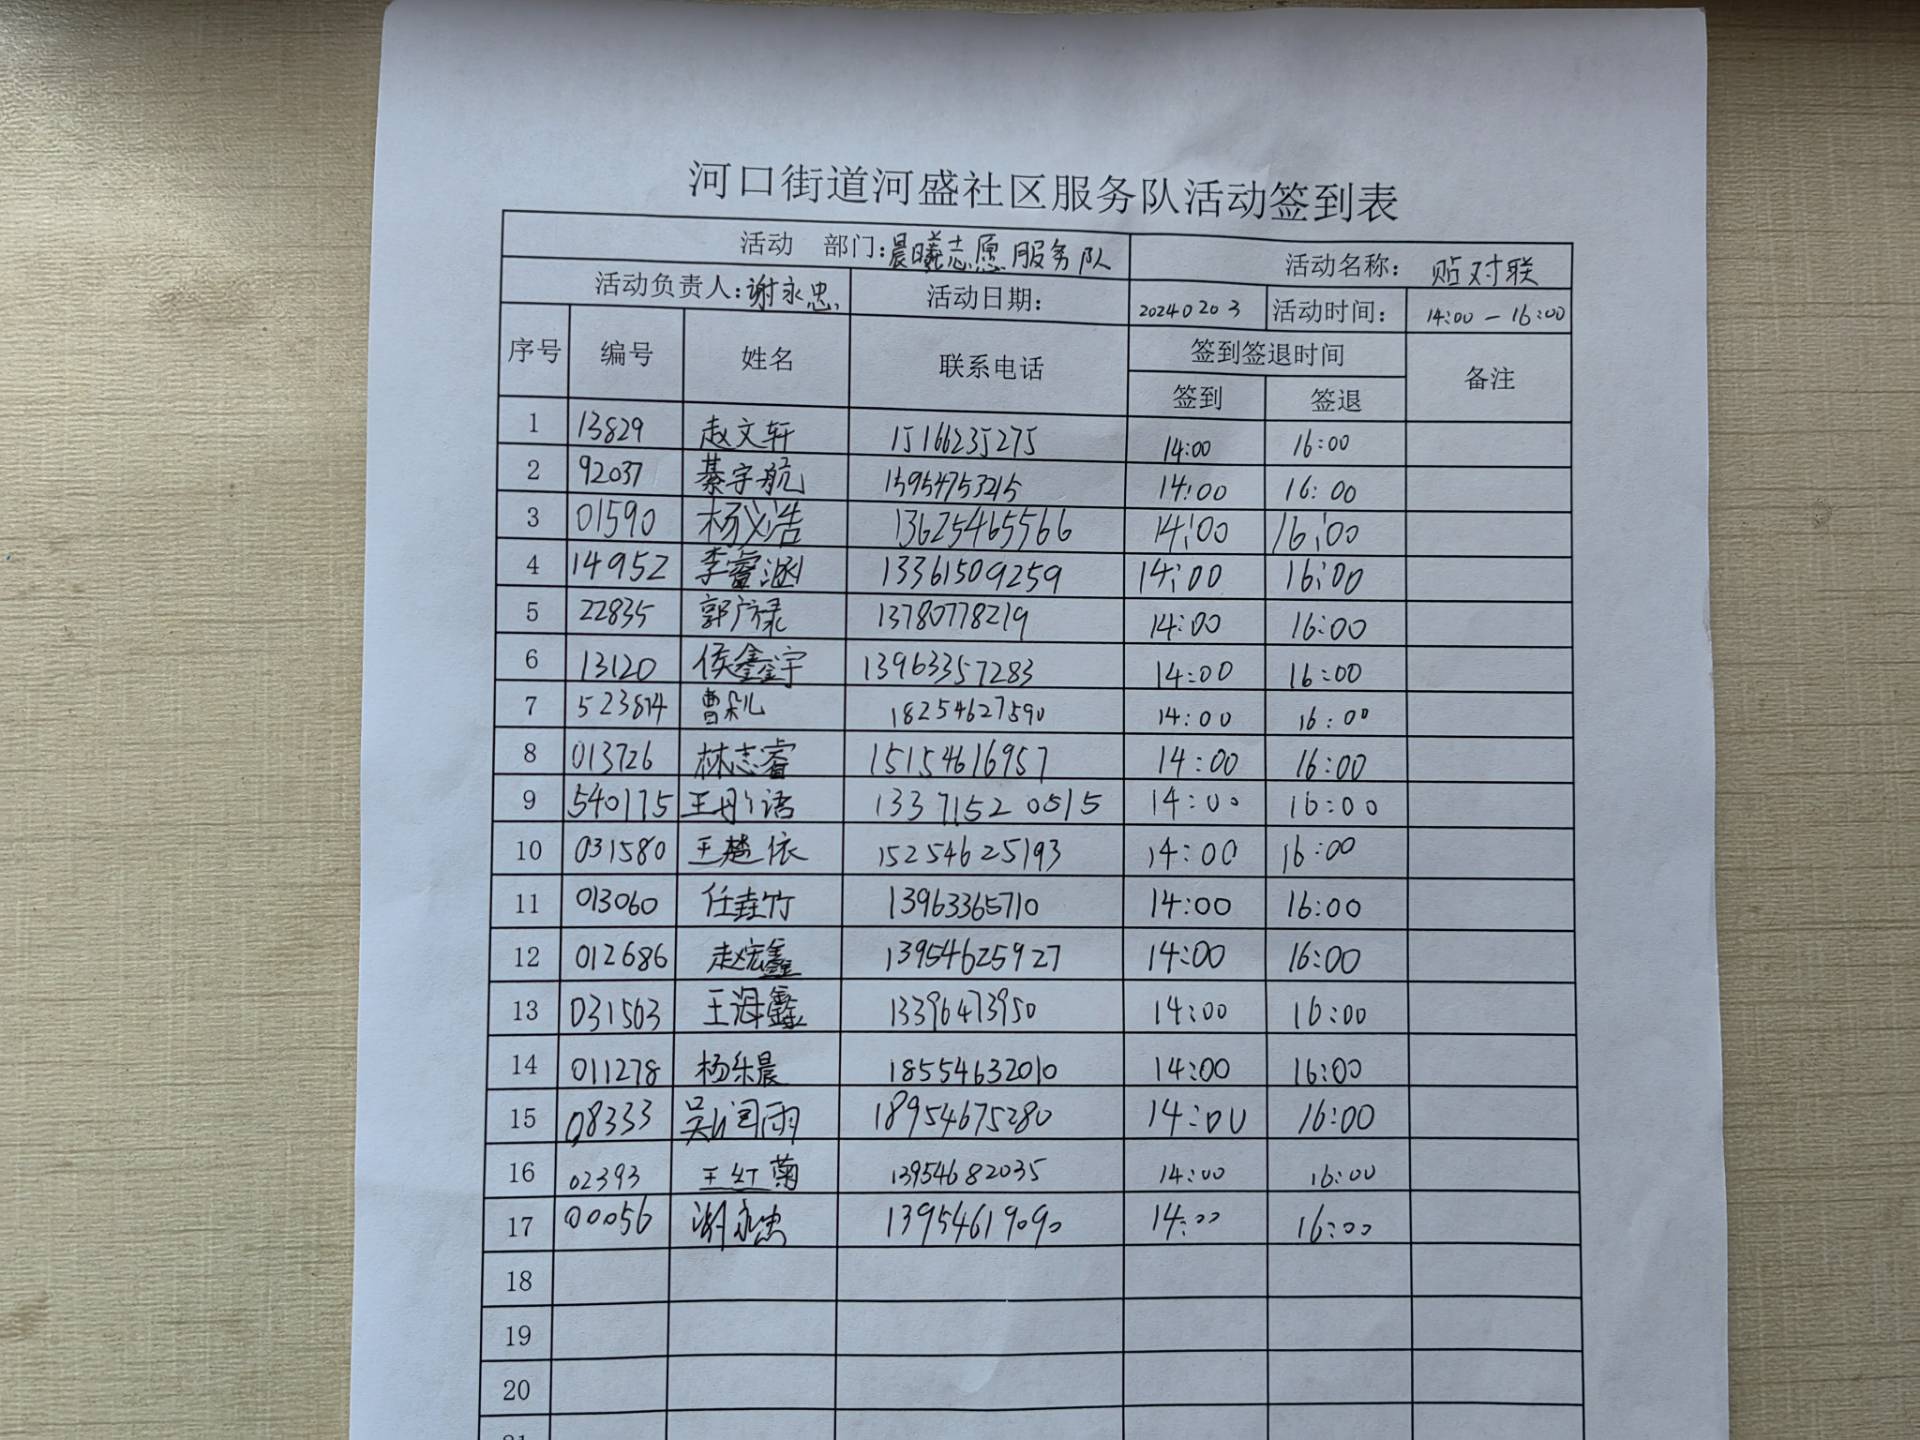 河口街道河盛社区服务队活动签到表
活动 部门:晨曦志愿服务队 活动名称: 贴对联
活动负责人:谢永忠. 活动日期: 20240203 活动时间: 14:00-16:00
序号 编号 姓名 联系电话 签到签退时间 备注
签到 签退
1 13829 赵文轩 15166235275 14:00 16:00
2 92037 綦宇航 13954753215 14:00 16:00
3 01590 杨义浩 13625465566 14:00 16:00
4 14952 李睿涵 13361509259 14:00 16:00
5 22835 郭广禄 13780778219 14:00 16:00
6 13120 侯鑫宇 13963357283 14:00 16:00
7 523814 曹朵儿 18254627590 14:00 16:00
8 013726 林志睿 15154616957 14:00 16:00
9 540175 王彤语 13371520515 14:00 16:00
10 031580 王楚依 15254625193 14:00 16:00
11 013060 任垚竹 13963365710 14:00 16:00
12 012686 赵宏鑫 13954625927 14:00 16:00
13 031563 王海鑫 13396473950 14:00 16:00
14 011278 杨乐晨 18554632010 14:00 16:00
15 08333 吴润雨 18954675280 14:00 16:00
16 02393 王红菊 13954682035 14:00 16:00
17 00056 谢永忠 13954619090 14:00 16:00
18
19
20